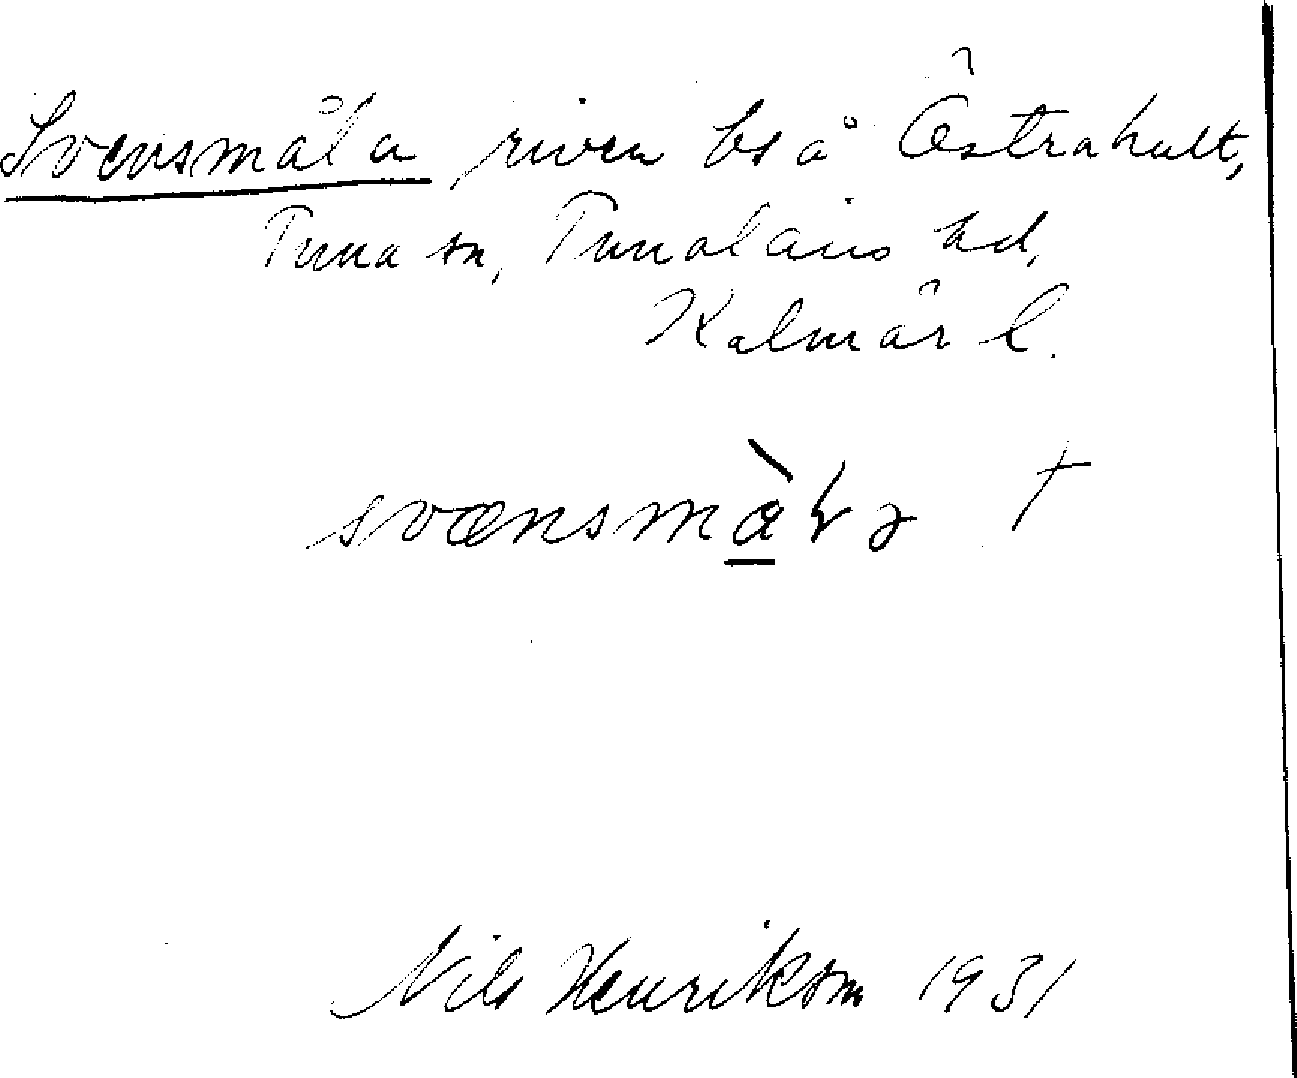 Svensmåla riven bs å Östrahult,
Tuna sn, Tunaläns hd,
Kalmar l.
svænsmàlɂa †
Nils Henrikson 1931